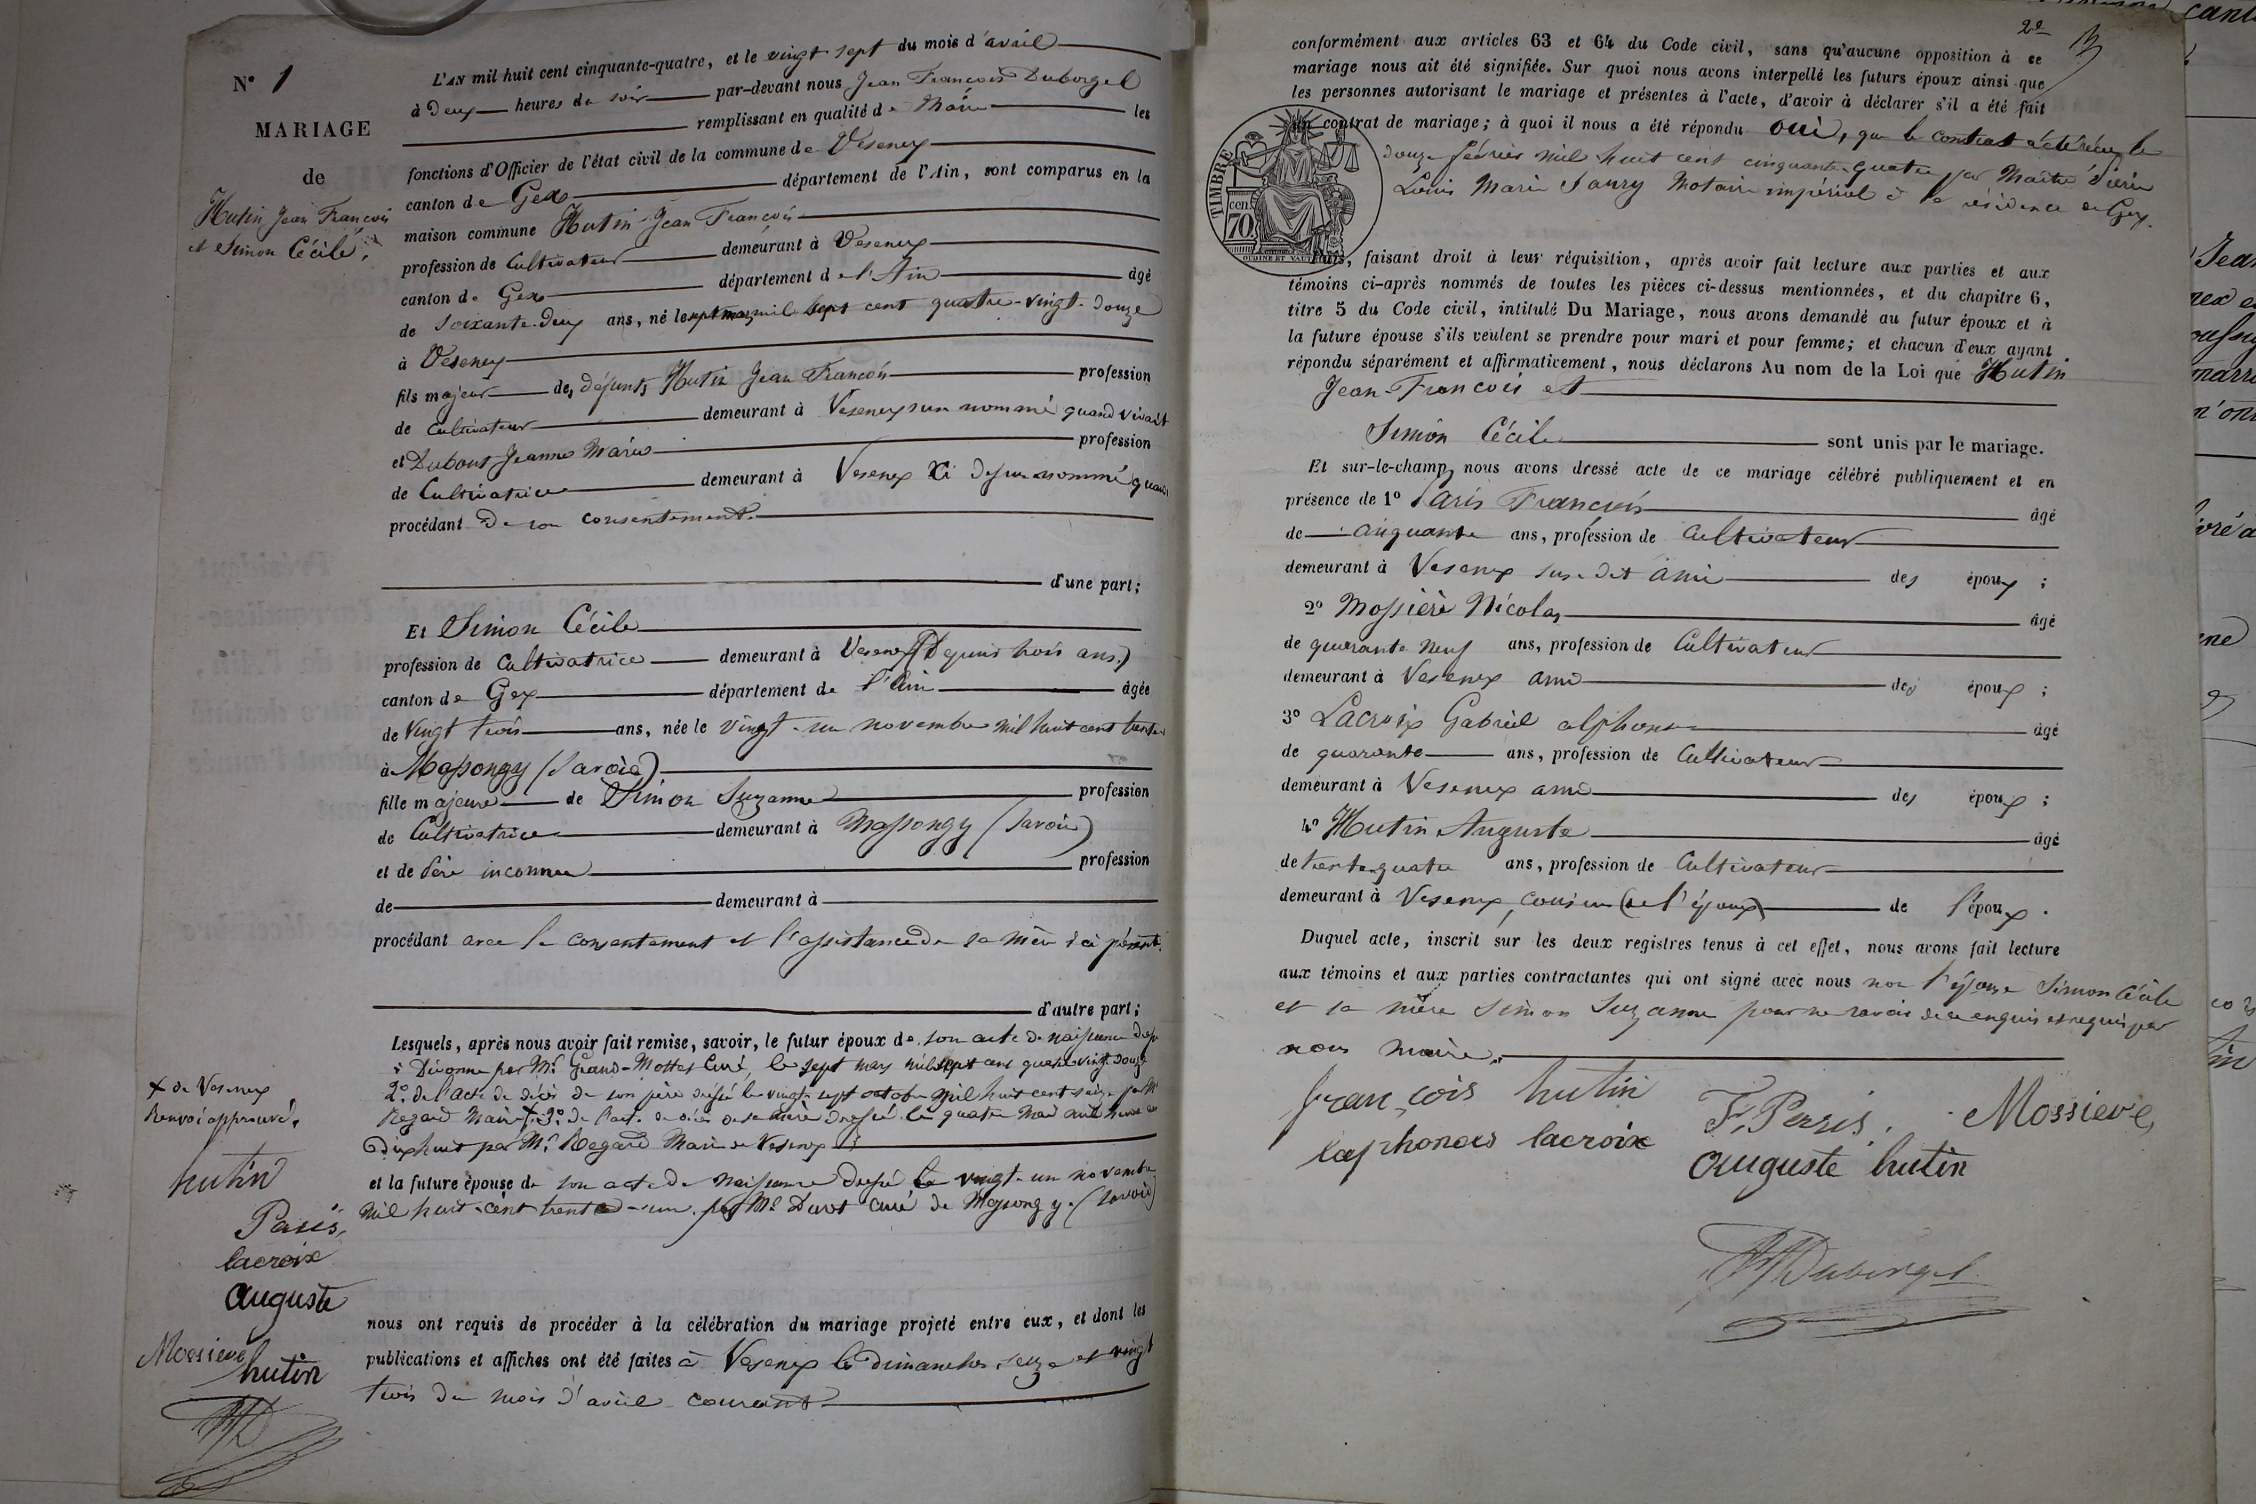 N° 1
MARIAGE
de
Hutin Jean François
et Simon Cécile.
L'AN mil huit cent cinquante-quatre, et le vingt sept du mois d'avril
à Deux heures du soir par-devant nous Jean François Duborgel
remplissant en qualité de Maire les
fonctions d'Officier de l'état civil de la commune de Vesenex
canton de Gex département de l'Ain, sont comparus en la
maison commune Hutin Jean François
profession de Cultivateur demeurant à Vesenex
canton de Gex département de l'Ain âgé
de soixante-deux ans, né le sept mars mil sept cent quatre-vingt-douze
à Vesenex
fils majeur des défunts Hutin Jean François profession
de Cultivateur demeurant à Vesenex nommé quand vivait
et Dubout Jeanne Marie profession
de Cultivatrice demeurant à Vesenex nommé quand
procédant de son consentement.
d'une part;
Et Simon Cécile
profession de Cultivatrice demeurant à Vesenex (Depuis trois ans.)
canton de Gex département de l'Ain âgée
de Vingt trois ans, née le vingt-un novembre mil huit cent trente
à Massongy (Savoie)
fille majeure de Simon Suzanne profession
de Cultivatrice demeurant à Massongy (Savoie)
et de Père inconnu profession
de demeurant à
procédant avec le consentement et l'assistance de sa mère ici présente.
d'autre part;
Lesquels, après nous avoir fait remise, savoir, le futur époux de son acte de naissance
à Divonne par Mr. Grand-Mottet Curé, le sept mars mil sept cent quatre vingt douze
2°. de l'acte de décès de son père dressé le vingt-sept octobre mil huit cent seize par Mr
Regard Maire + 3°. de l'acte de décès de sa mère dressé le quatre mai mil huit cent
dixhuit par Mr. Regard Maire de Vesenex
et la future épouse de son acte de naissance dressé le vingt-un novembre
mil huit-cent trente-un par Mr Curé de Massongy. (Savoie)
+ de Vesenex
Renvoi approuvé.
hutin
Paris,
lacroix
auguste
Mossieve
hutin
nous ont requis de procéder à la célébration du mariage projeté entre eux, et dont les
publications et affiches ont été faites à Vesenex les dimanches seize et vingt
trois du mois d'avril courant
2e
conformément aux articles 63 et 64 du Code civil, sans qu'aucune opposition à ce
mariage nous ait été signifiée. Sur quoi nous avons interpellé les futurs époux ainsi que
les personnes autorisant le mariage et présentes à l'acte, d'avoir à déclarer s'il a été fait
un contrat de mariage; à quoi il nous a été répondu oui, que le contrat a été reçu le
douze février mil huit cent cinquante-quatre par Maître
Louis Marie Notaire impérial à la résidence de Gex.
TIMBRE
70 cen.
OUDINE ET
faisant droit à leur réquisition, après avoir fait lecture aux parties et aux
témoins ci-après nommés de toutes les pièces ci-dessus mentionnées, et du chapitre 6,
titre 5 du Code civil, intitulé Du Mariage, nous avons demandé au futur époux et à
la future épouse s'ils veulent se prendre pour mari et pour femme; et chacun d'eux ayant
répondu séparément et affirmativement, nous déclarons Au nom de la Loi que Hutin
Jean-François et
Simon Cécile sont unis par le mariage.
Et sur-le-champ nous avons dressé acte de ce mariage célébré publiquement et en
présence de 1° Paris François âgé
de cinquante ans, profession de Cultivateur
demeurant à Vesenex susdit ami des époux;
2° Mossière Nicolas âgé
de quarante neuf ans, profession de Cultivateur
demeurant à Vesenex ami des époux;
3° Lacroix Gabriel alphonse âgé
de quarante ans, profession de Cultivateur
demeurant à Vesenex ami des époux;
4° Hutin Auguste âgé
de trente quatre ans, profession de Cultivateur
demeurant à Vesenex, cousin (de l'époux) de l'époux.
Duquel acte, inscrit sur les deux registres tenus à cet effet, nous avons fait lecture
aux témoins et aux parties contractantes qui ont signé avec nous non l'épouse Simon Cécile
et sa mère Simon Suzanne pour ne savoir de ce enquis et requis par
nous maire.
françois hutin
F. Perris.
Mossieve,
lacroix
auguste hutin
Duborgel